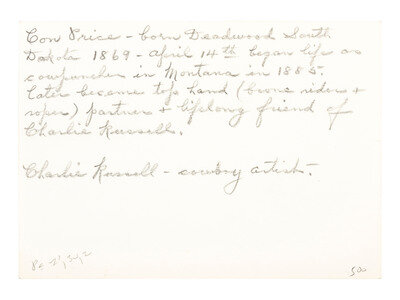 Con Price - born Deadwood South
Dakota 1869 - April 14th began life as
cowpuncher in Montana in 1885.
Later became top hand (bronc rider &
roper) partner & lifelong friend of
Charlie Russell.
Charlie Russell - cowboy artist.
500